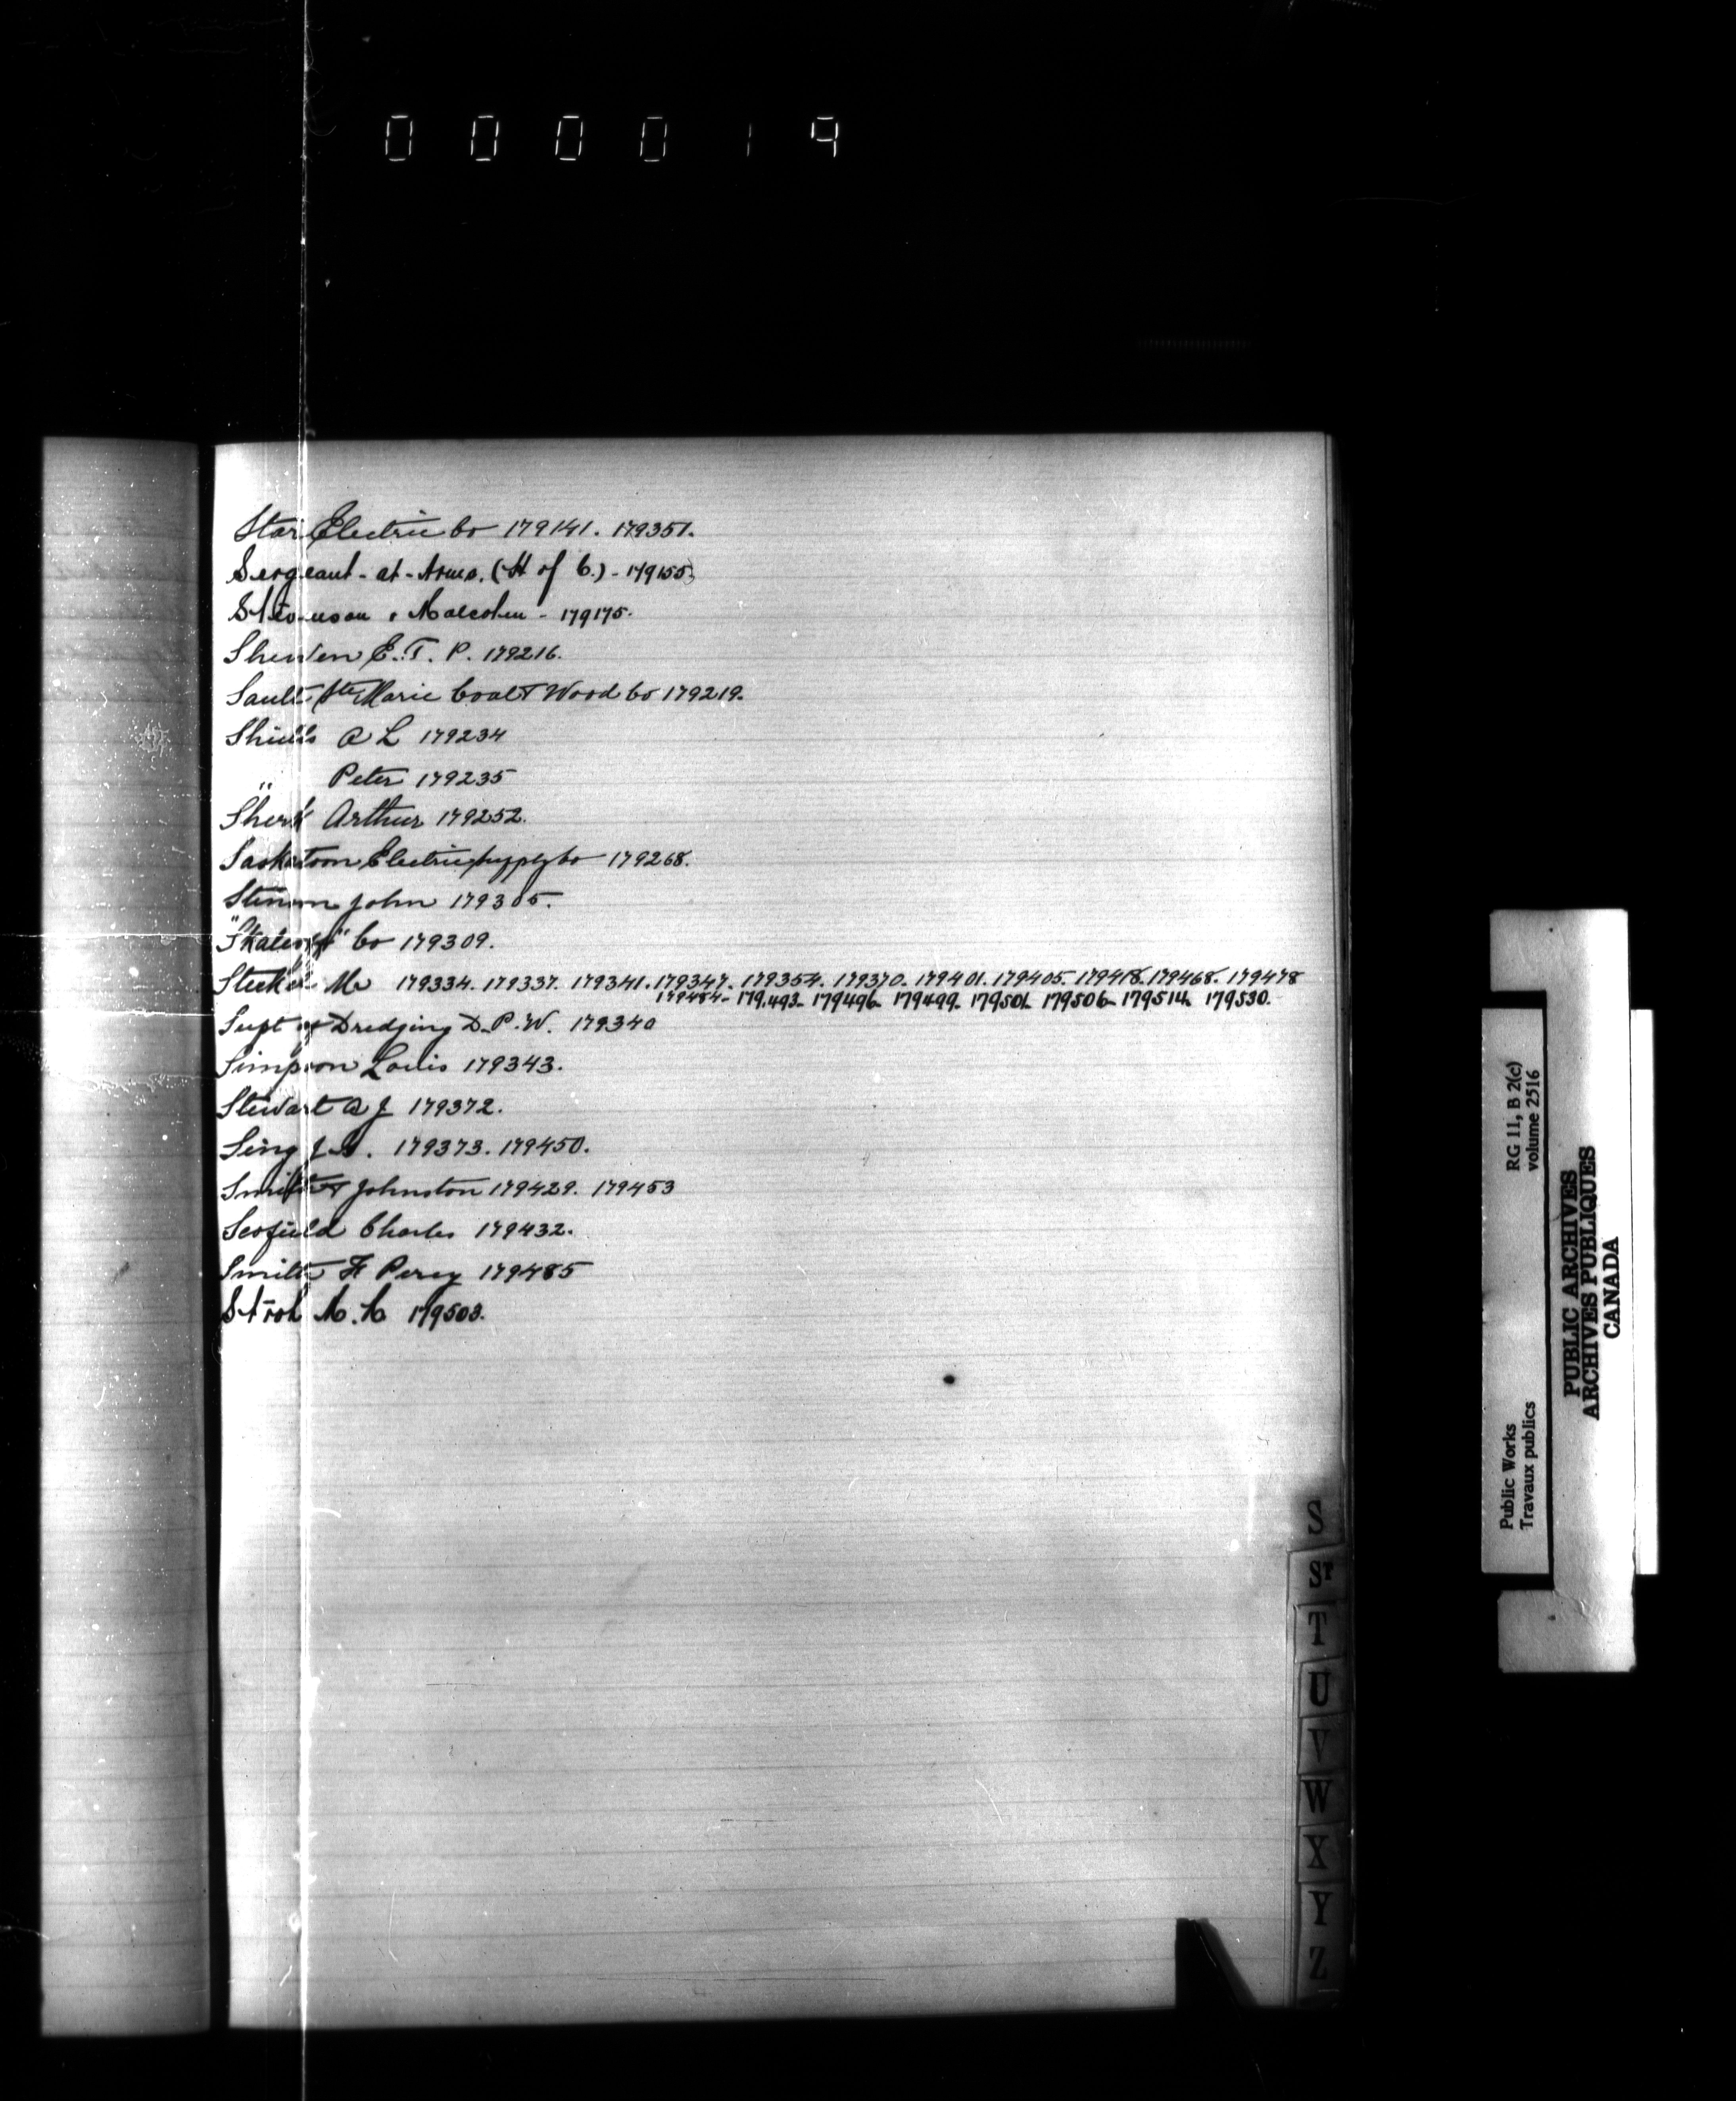 000019
Star Electric Co 179141. 179351.
Sergeant-at-Arms. (H of C.) - 179155
Stevenson & Malcolm - 179175.
Shewen E. T. P. 179216.
Sault Ste Marie Coal & Wood Co 179219.
Shields A L 179234
" Peter 179235
Sherk Arthur 179252.
Saskatoon Electric Supply Co 179268.
Stinson John 179305.
Co 179309.
179334. 179337. 179341. 179347. 179354. 179370. 179401. 179405. 179418. 179468. 179478
179484- 179493- 179496- 179499- 179501- 179506- 179514- 179530.
Supt of Dredging D.P.W. 179340
Simpson Louis 179343.
Stewart A J 179372.
Sing J G. 179373. 179450.
Smith & Johnston 179429. 179453
Scofield Charles 179432.
Smith H Percy 179485
Stroh M. M 179503.
S
ST
T
U
V
W
X
Y
Z
RG 11, B 2(c)
volume 2516
Public Works
Travaux publics
PUBLIC ARCHIVES
ARCHIVES PUBLIQUES
CANADA